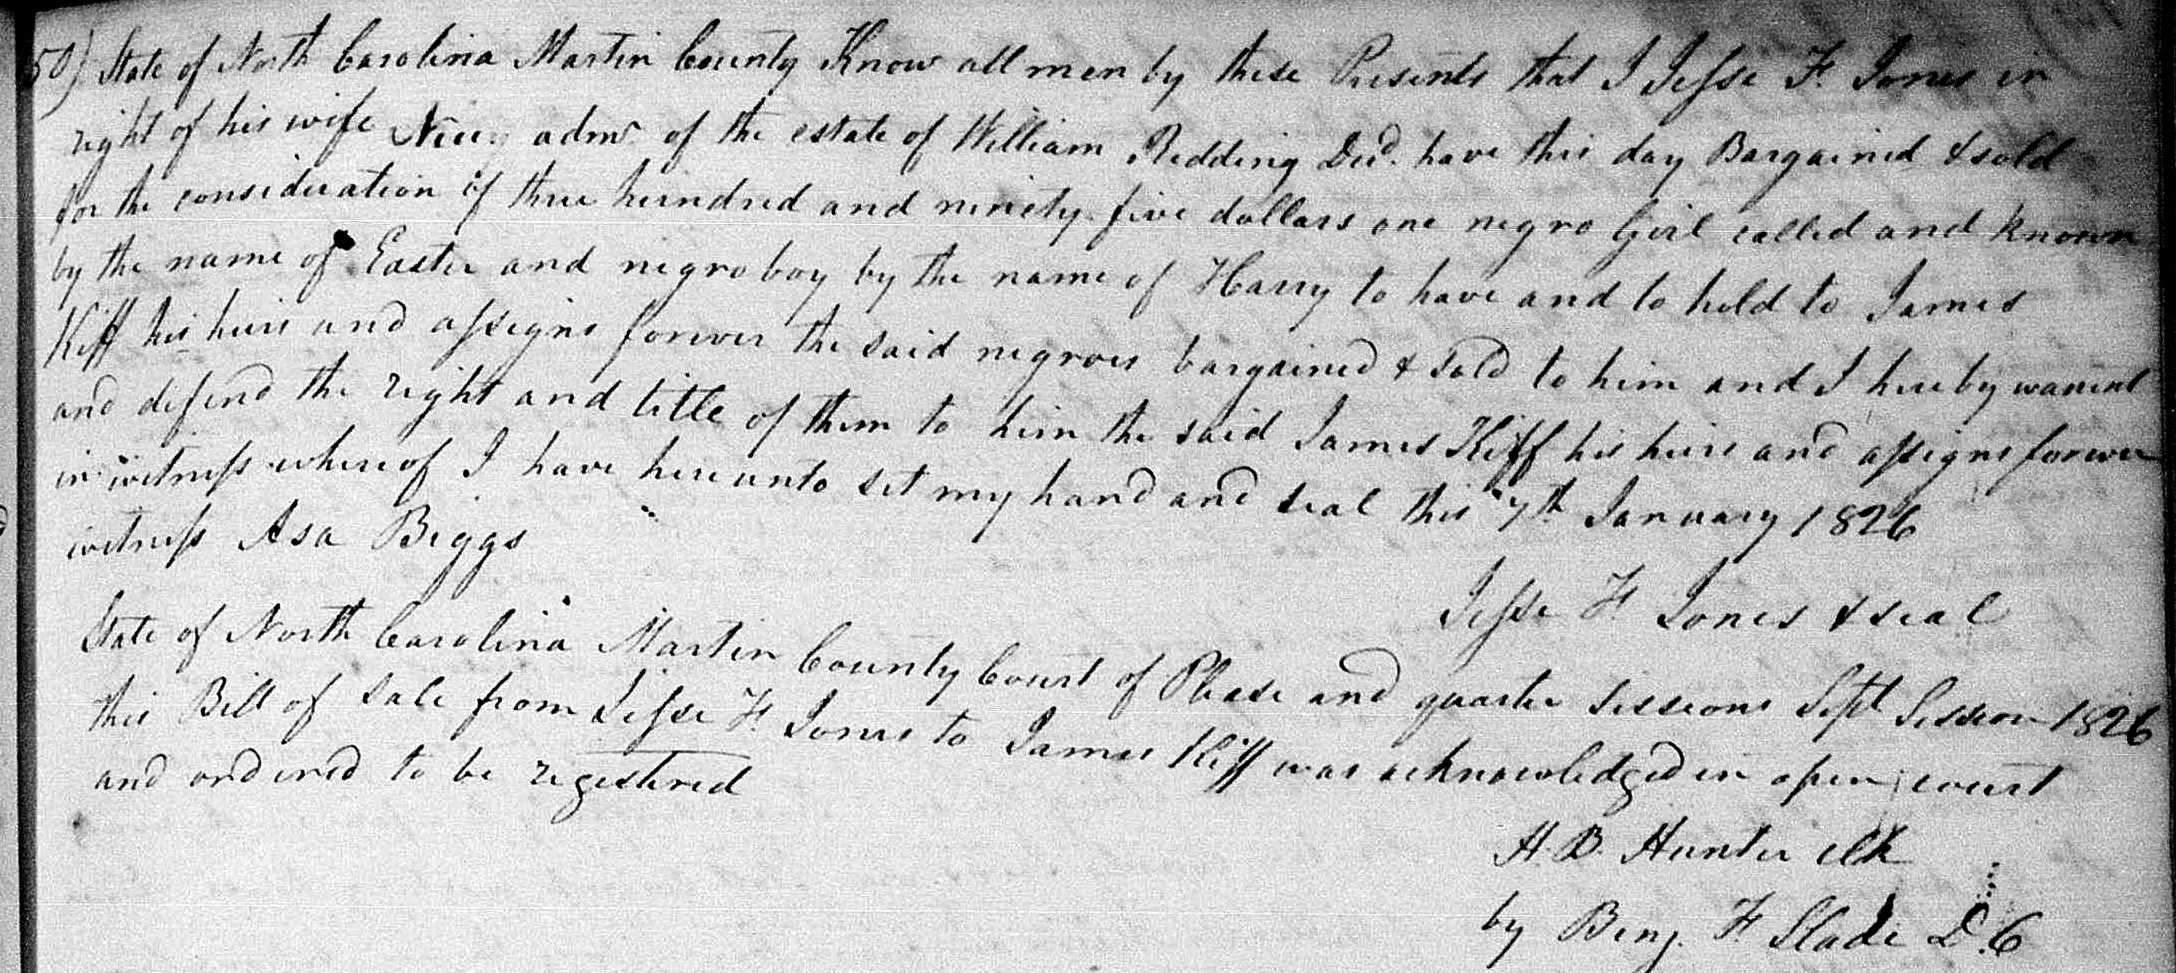 50) State of North Carolina Martin County Know all men by these Presents that I Jesse F. Jones in
right of his wife admr of the estate of William Redding Decd. have this day Bargained & sold
for the consideration of three hundred and ninety five dollars one negro Girl called and known
by the name of Easter and negro boy by the name of Harry to have and to hold to James
Kiff his heirs and assigns forever the said negroes bargained & sold to him and I hereby warrent
and defend the right and title of them to him the said James Kiff his heirs and assigns forever
in witness whereof I have hereunto set my hand and seal this 7th January 1826
witness Asa Biggs
Jesse F Jones & seal
State of North Carolina Martin County Court of Please and quarter sessions Sept Session 1826
this Bill of sale from Jesse F. Jones to James Kiff was acknowledged in open court
and ordered to be registered
H. B. Hunter clk
by Benj. F Slade D.C